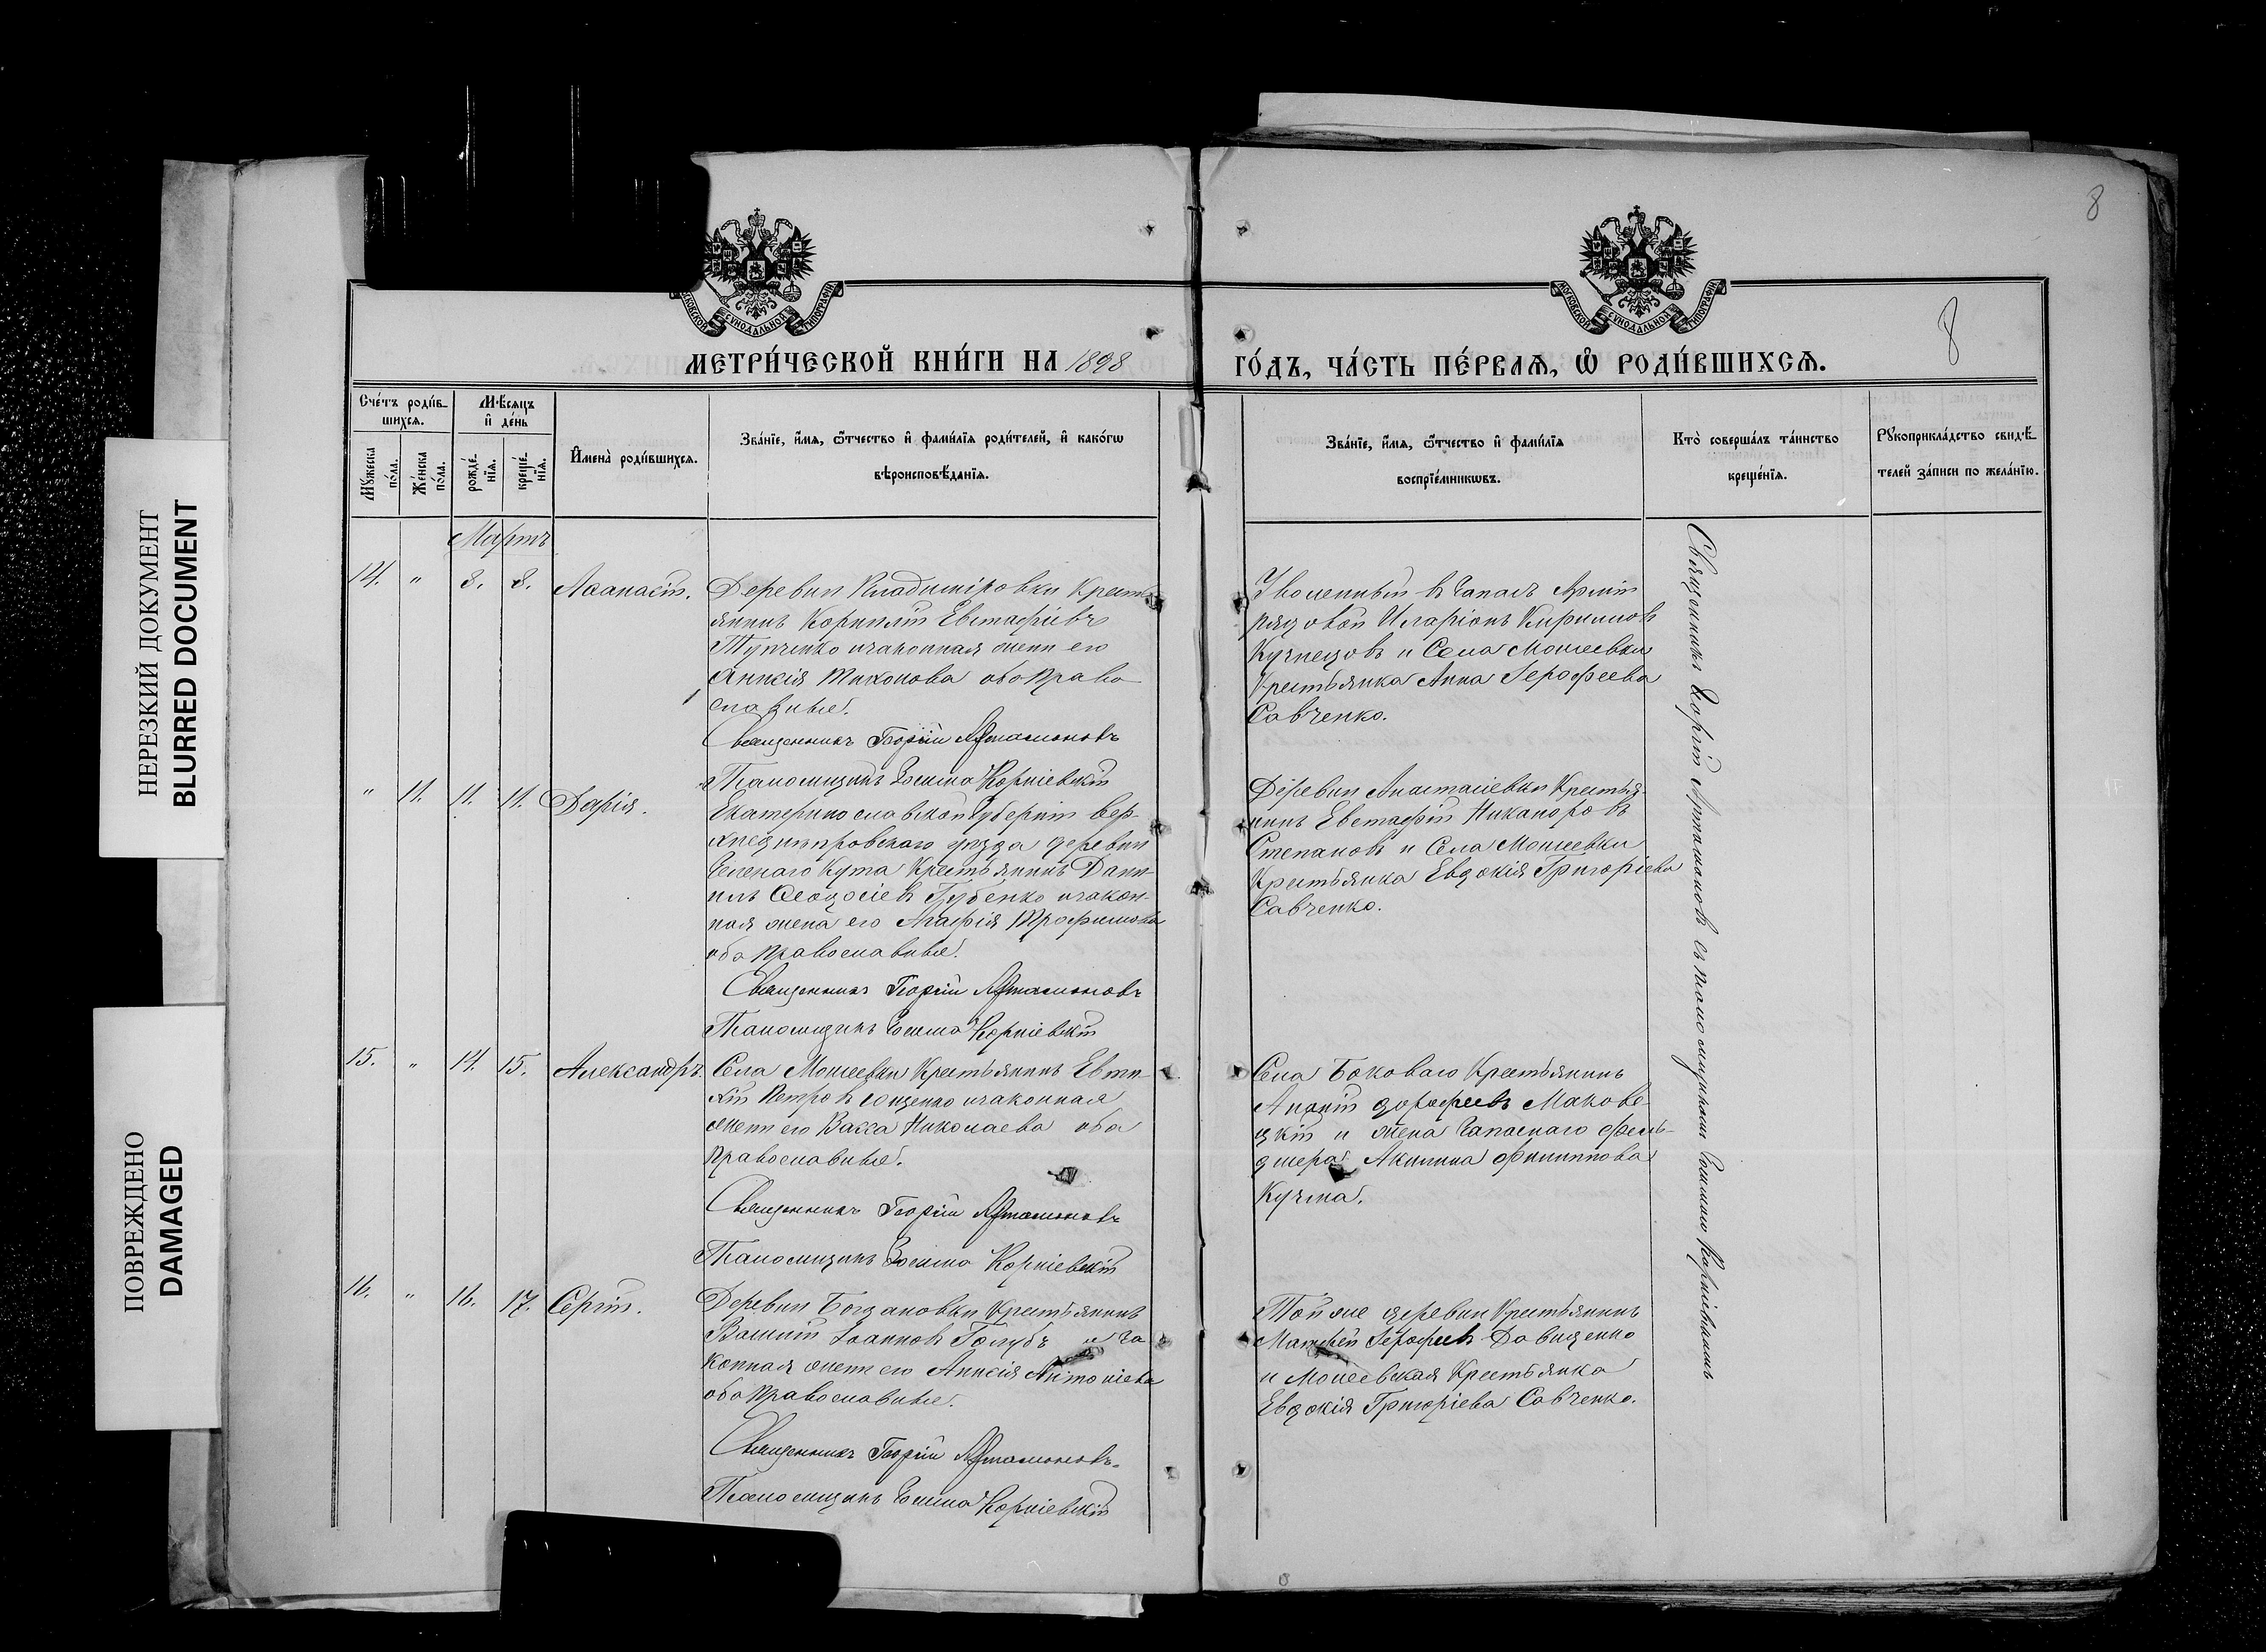 НЕРЕЗКИЙ ДОКУМЕНТ
BLURRED DOCUMENT
ПОВРЕЖДЕНО
DAMAGED
8
8
МОСКОВСКОЙ СУНОДАЛЬНОЙ ТИПОГРАФІИ
МОСКОВСКОЙ СУНОДАЛЬНОЙ ТИПОГРАФІИ
МЕТРИ́ЧЕСКОЙ КНИ́ГИ НА 1898
ГО́ДЪ, ЧА́СТЬ ПЕ́РВАѦ, Ѡ҆ РОДИ́ВШИХСѦ.
Сче́тъ роди́в-
шихсѧ.
Мѣ́сѧцъ
и҆ де́нь
Мꙋ́жеска
по́ла.
Же́нска
по́ла.
рожде́-
нїѧ.
креще́-
нїѧ.
И҆мена̀ роди́вшихсѧ.
Зва́нїе, и҆́мѧ, ѻ҆́тчество и҆ фами́лїѧ роди́телей, и҆ како́гѡ
вѣроисповѣ́данїѧ.
Зва́нїе, и҆́мѧ, ѻ҆́тчество и҆ фами́лїѧ
воспрїе́мникѡвъ.
Кто̀ соверша́лъ та́инство
креще́нїѧ.
Рꙋкоприкла́дство свидѣ́-
телей за́писи по жела́нїю.
Мартъ
14. " 8. 8. Аѳанасій.
Деревни Владиміровки Кресть
янинъ Корнилій Евстафіевъ
Тупченко и законная жена его
Анисія Тихонова оба право
славные.
Священникъ Георгій Артамоновъ
Псаломщикъ Козьма Корніевскій
Уволенный въ Запасъ Арміи
рядовой Иларіонъ Кириловъ
Кузнецовъ и Села Моисеевки
Крестьянка Анна Іерофеева
Савченко.
" 11. 11. 11. Дарія.
Екатеринославской Губерніи Вер-
хнеднѣпровскаго уѣзда деревни
Зеленаго Кута Крестьянинъ Дани-
илъ Ѳеодосіевъ Губенко и закон-
ная жена его Агафія Трофимова
оба православные.
Священникъ Георгій Артамоновъ
Псаломщикъ Козьма Корніевскій
Деревни Анастасіевки Крестья-
нинъ Евстафій Никаноровъ
Степановъ и Села Моисеевки
Крестьянка Евдокія Григоріева
Савченко.
15. " 14. 15. Александръ.
Села Моисеевки Крестьянинъ Евти-
хій Петровъ Ющенко и законная
жена его Васса Николаева оба
православные.
Священникъ Георгій Артамоновъ
Псаломщикъ Козьма Корніевскій
Села Боковаго Крестьянинъ
дорофеевъ Макове-
цкій и жена Запаснаго фель-
дшера Акилина Филиппова
Кучма.
16. " 16. 17. Сергій.
Деревни Богдановки Крестьянинъ
Василій Іоанновъ Голубъ и за
конная жена его Анисія Антоніева
оба православные.
Священникъ Георгій Артамоновъ.
Псаломщикъ Козьма Корніевскій
Той же деревни Крестьянинъ
Матфей Іерофеевъ Давиденко
и Моисеевская Крестьянка
Евдокія Григоріева Савченко.
Священникъ Георгій Артамоновъ съ псаломщикомъ Козьмою Корніевскимъ